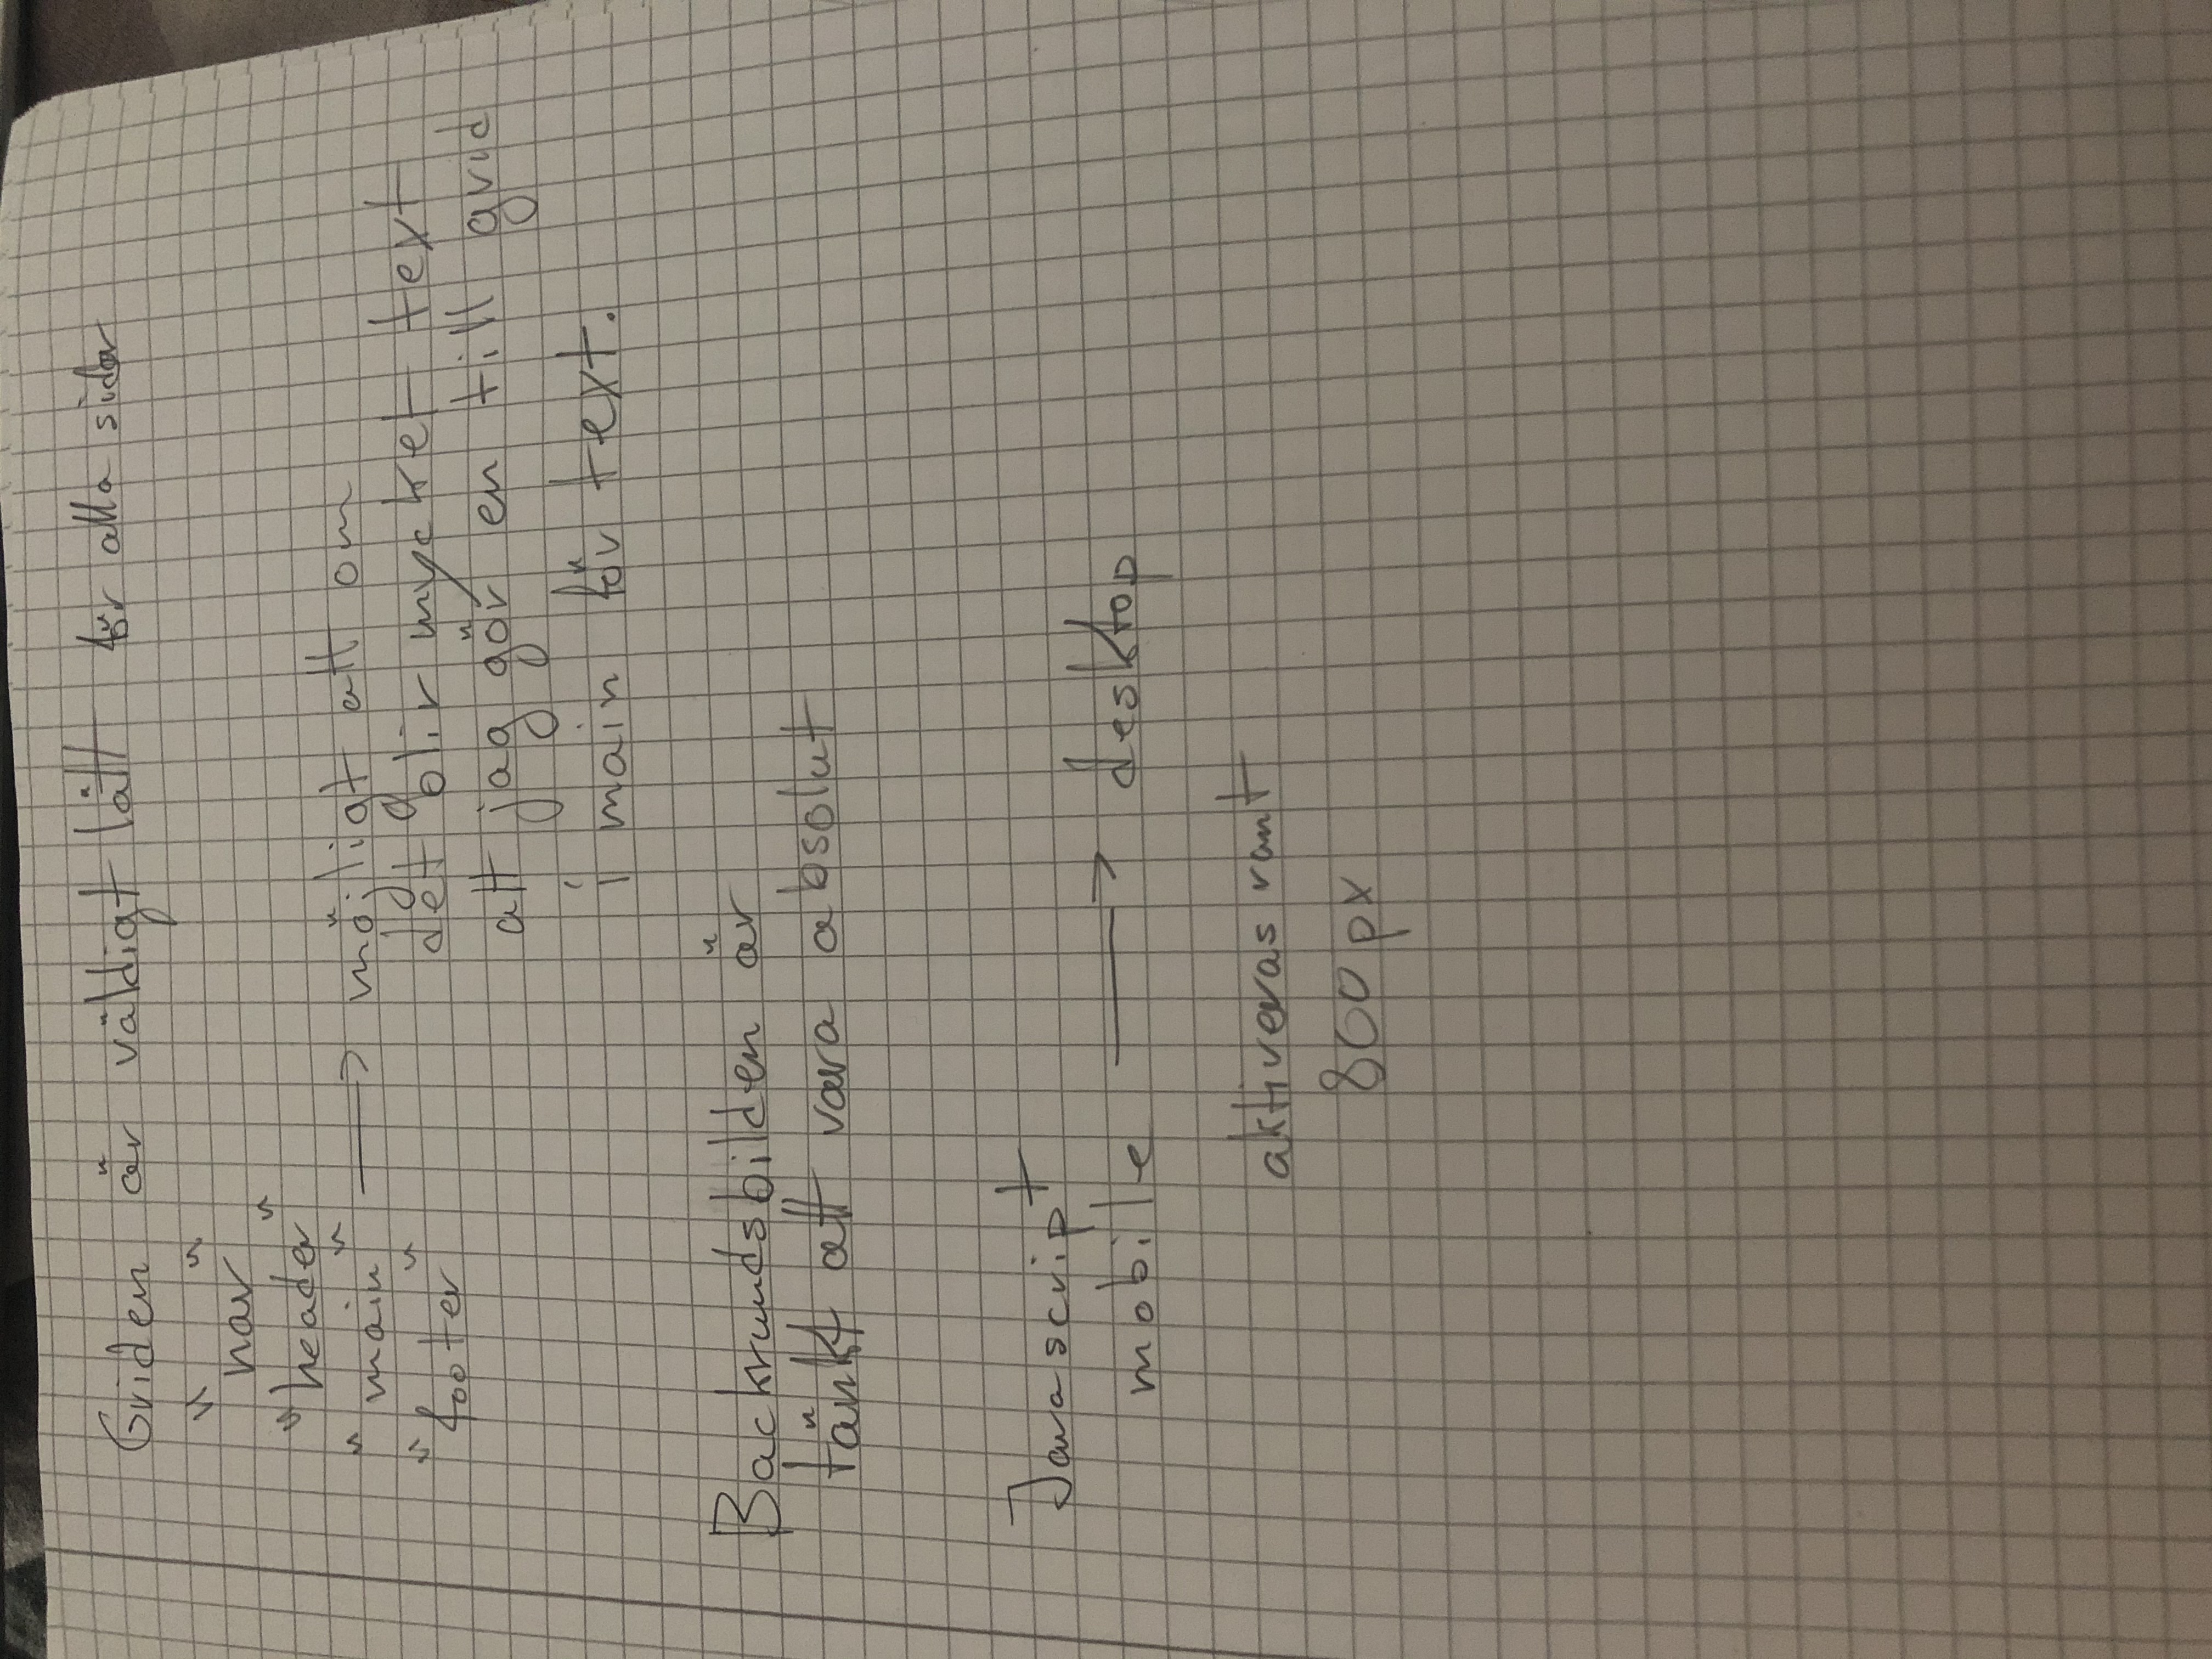 Griden är väldigt lätt för alla sidor
"nav"
"header"
"main" → möjligt att om
"footer" det blir mycket text
att jag gör en till grid
i main för text.
Backrundsbilden är
tänkt att vara absolut
Javascript
mobille → desktop
aktiveras runt
800 px